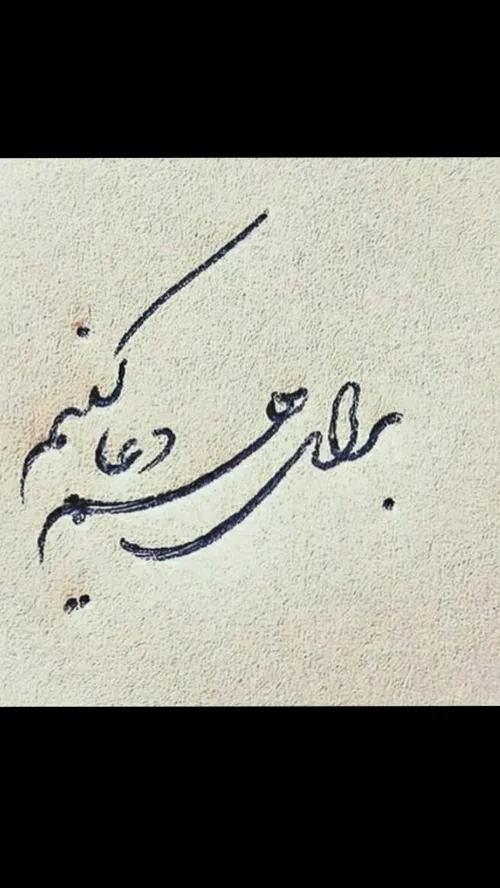 برای هم دعا کنیم